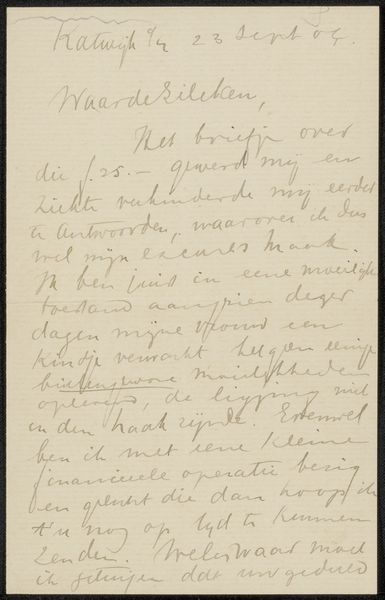 Katwijk a/z 23 Sept 04.
Waarde Zilcken,
Het briefje over
die f. 25.— gewerd mij en
ziekte verhinderde mij eerder
te antwoorden, waarover ik dus
wel mijn excuses maak.
Ik ben juist in eene moeilijke
toestand aangezien dezer
dagen mijne vrouw een
kindje verwacht hetgeen eenige
moeilijkheden
oplevert, de ligging niet
in den haak zijnde. Evenwel
ben ik met eene kleine
financieele operatie bezig
en gelukt die dan hoop ik
't u nog op tijd te kunnen
zenden. Weliswaar moet
ik getuigen dat uw geduld